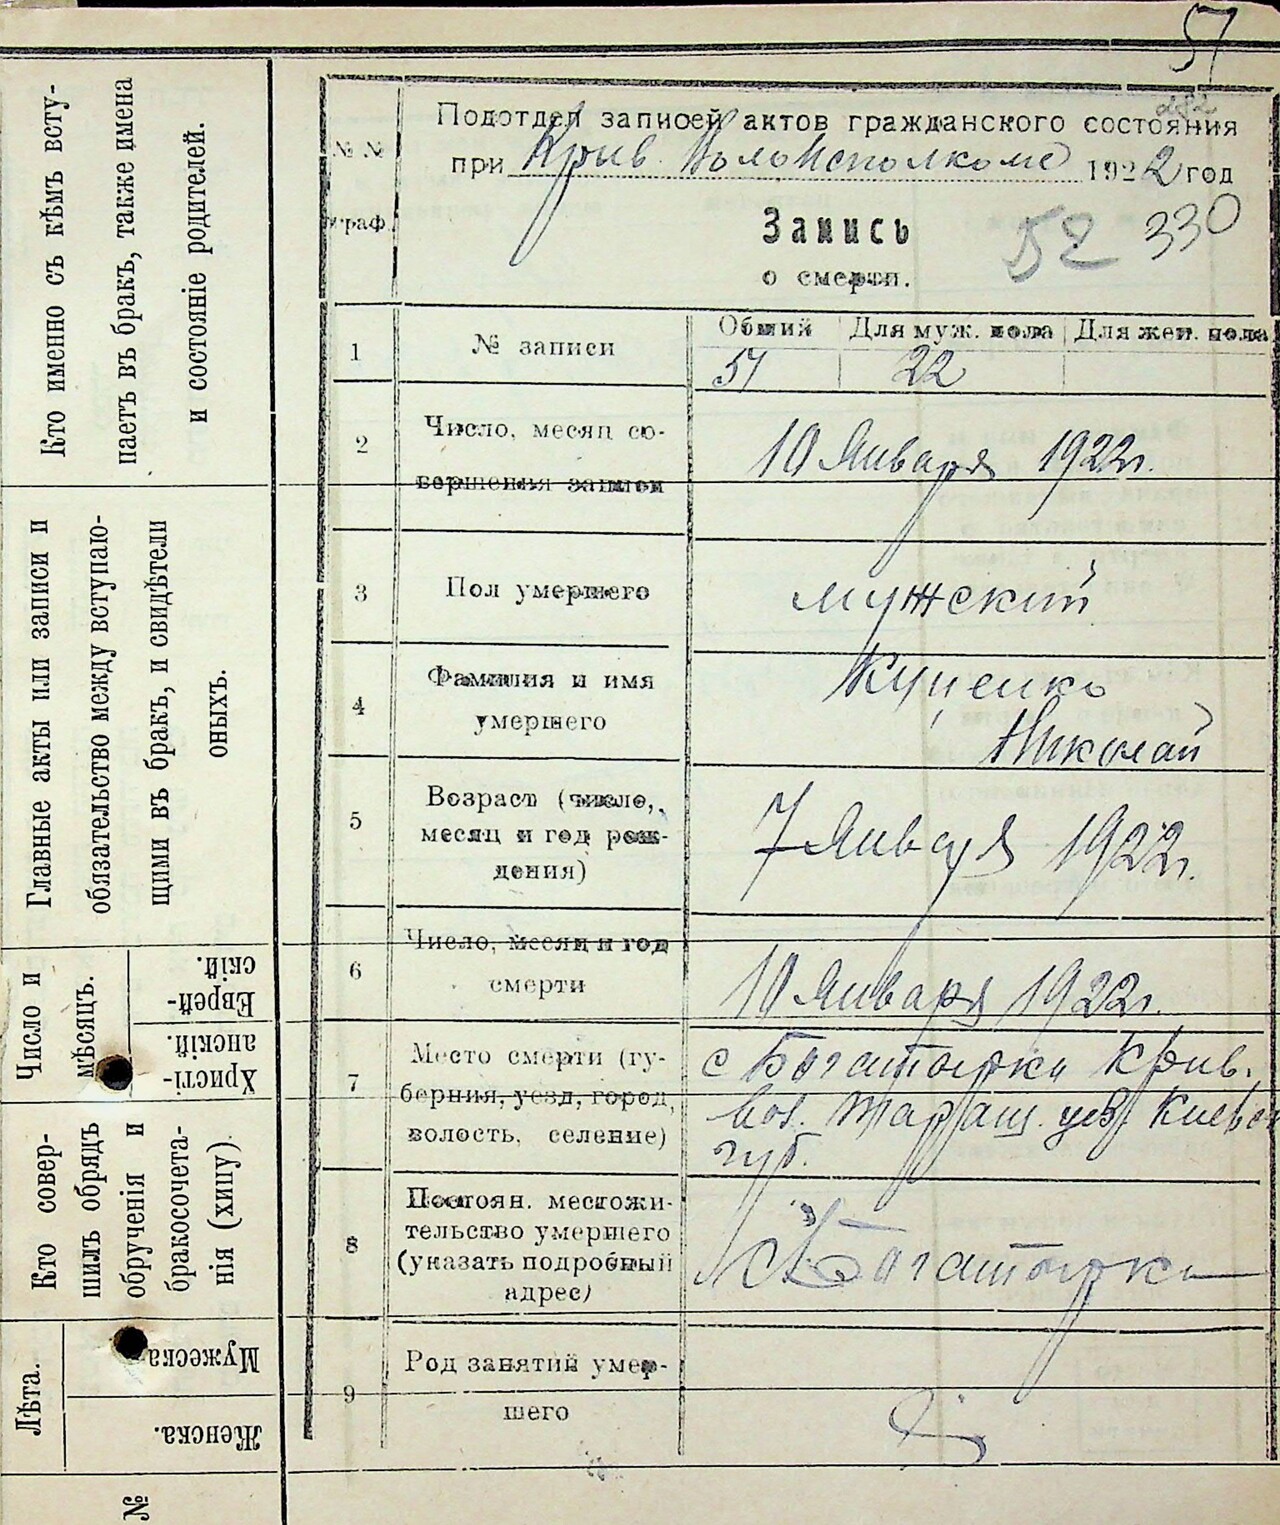 57
Подотдел записей актов гражданского состояния
при Крив. Волисполкоме 1922 год
№ №
граф.
Запись
о смерти.
52 330
1 № записи Общий Для муж. пола Для жен. пола
57 22
2 Число, месяц со-
вершения записи
10 Января 1922 г.
3 Пол умершего мужский
4 Фамилия и имя
умершего
Куценко
Николай
5 Возраст (число,
месяц и год рож-
дения)
7 Января 1922 г.
6 Число, месяц и год
смерти
10 Января 1922 г.
7 Место смерти (гу-
берния, уезд, город,
волость, селение)
с Богатырка Крив.
вол. Таращ. уез. Киевск
губ.
8 Постоян. местожи-
тельство умершего
(указать подробный
адрес)
с Богатырка
9 Род занятий умер-
шего
Кто именно съ кѣмъ всту-
паетъ въ бракъ, также имена
и состояніе родителей.
Главные акты или записи и
обязательство между вступаю-
щими въ бракъ, и свидѣтели
оныхъ.
Число и
мѣсяцъ.
Еврей-
скій.
Христі-
анскій.
Кто совер-
шилъ обрядъ
обрученія и
бракосочета-
нія (хипу)
Лѣта.
Мужеска.
Женска.
№